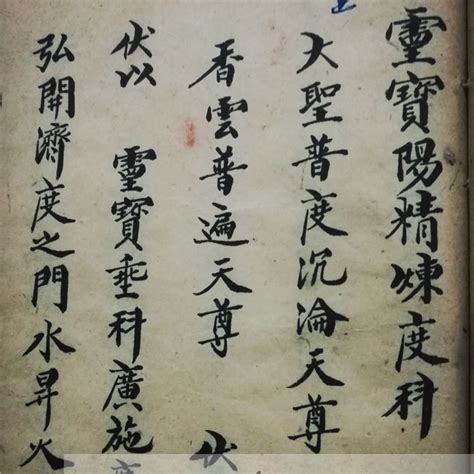 靈寶陽精煉度科
大聖普度沉淪天尊
香雲普遍天尊 伏
伏以 靈寶垂科廣施
弘開濟度之門水昇火